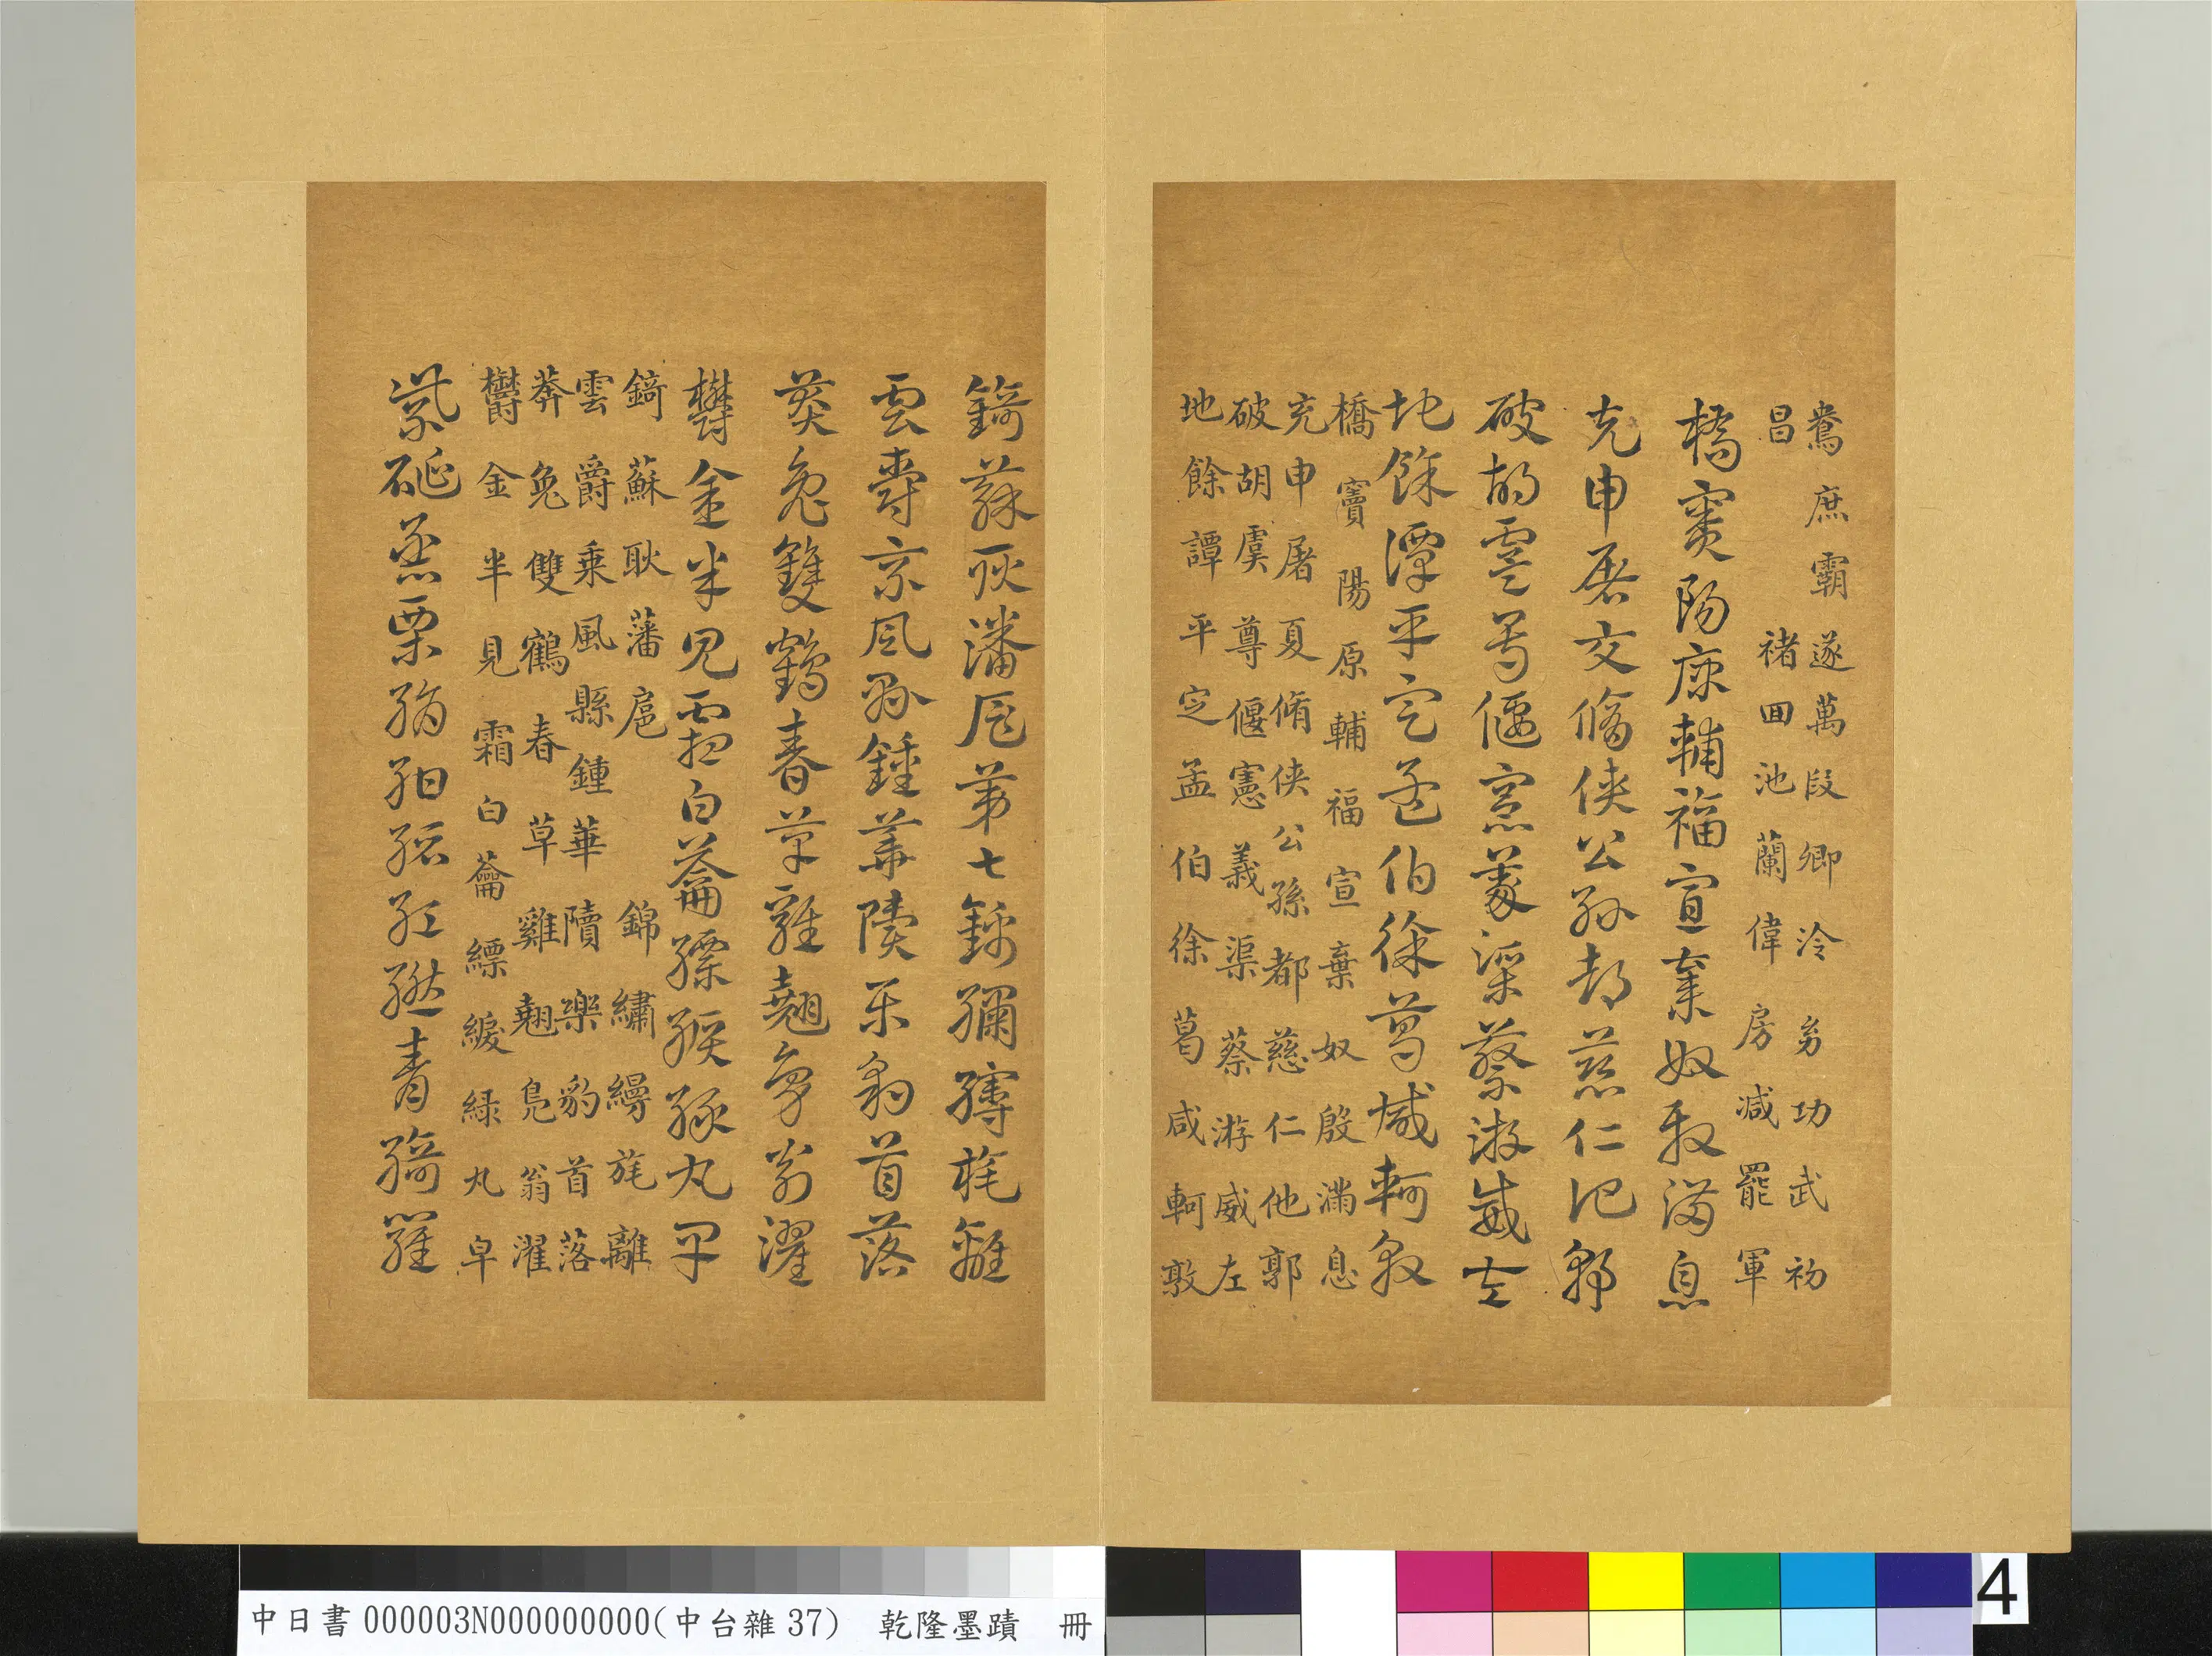 鴦庶霸遂萬段卿泠刕功武初
昌褚回池蘭偉房減罷軍
橋竇陽原輔福宣棄奴殷滿息
充申屠夏脩俠公孫都慈仁他郭
破胡虞尊偃憲義渠蔡游威左
地餘譚平定孟伯徐葛咸軻敦
橋竇陽原輔福宣棄奴殷滿息
充申屠夏脩俠公孫都慈仁他郭
破胡虞尊偃憲義渠蔡游威左
地餘譚平定孟伯徐葛咸軻敦
錡蘇耿潘扈第七錦繡縵旄離
雲爵乘風縣鍾華隫樂豹首落
莽兔雙鶴春草雞翹鳧翁濯
欝金半見霜白蘥縹緩綠丸皁
錡蘇耿藩扈錦繡縵旄離
雲爵乘風縣鍾華隫樂豹首落
莽兔雙鶴春草雞翹鳧翁濯
欝金半見霜白蘥縹緩緑丸皁
紫硟烝栗絹紺縉紅繎青綺羅
中日書000003N000000000(中台雜37) 乾隆墨蹟 冊
4